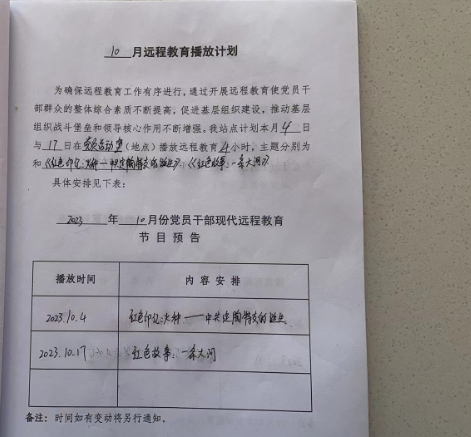 10 月远程教育播放计划
为确保远程教育工作有序进行，通过开展远程教育使党员干
部群众的整体综合素质不断提高，促进基层组织建设，推动基层
组织战斗堡垒和领导核心作用不断增强。我站点计划本月 4 日
与 17 日在党员活动室（地点）播放远程教育 4 小时，主题分别为
和《红色印记：火种——中共定陶支部的诞生》、《红色故事：一条大河》
具体安排见下表：
2023 年 10 月份党员干部现代远程教育
节目预告
播放时间 内容安排
2023.10.4 红色印记：火种——中共定陶支部的诞生
2023.10.17 红色故事：一条大河
备注：时间如有变动将另行通知。